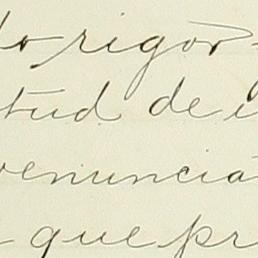 do rigor
tud de
enuncia
que pr